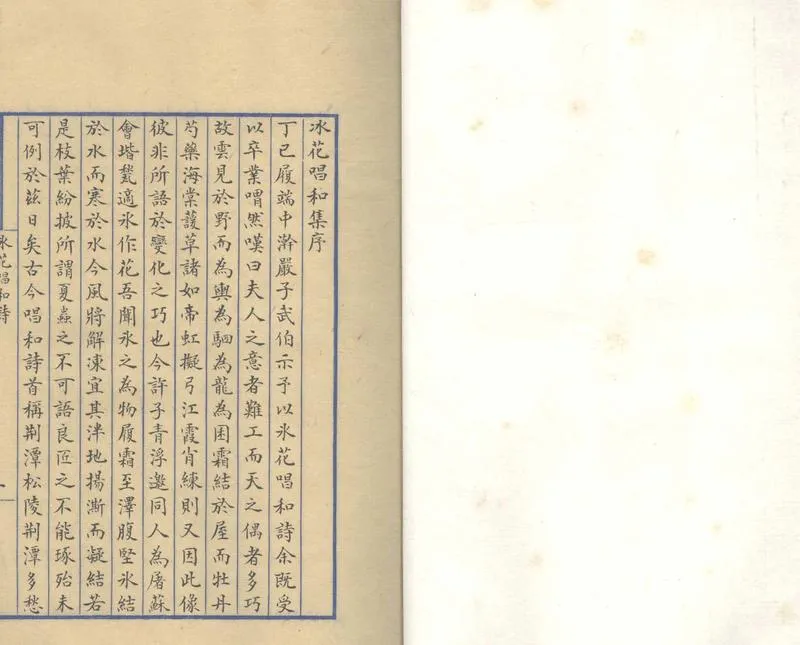 冰花唱和集序
丁巳履端中澣嚴子武伯示予以氷花唱和詩余既受
以卒業喟然嘆曰夫人之意者難工而天之偶者多巧
故雲見於野而為輿為駟為龍為囷霜結於屋而牡丹
芍藥海棠萲草諸如帝虹擬弓江霞肖練則又因此像
彼非所語於變化之巧也今許子青浮邀同人為屠蘇
會堦甃適氷作花吾聞氷之為物履霜至澤腹堅氷結
於水而寒於水今風將解凍宜其泮地揚澌而凝結若
是枝葉紛披所謂夏蟲之不可語良匠之不能琢殆未
可例於茲日矣古今唱和詩首稱荆潭松陵荆潭多愁
氷花唱和詩